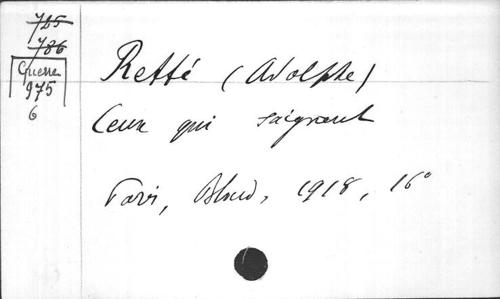 725
786
Guerre
975
6
Retté (Adolphe)
Ceux qui saignent
Paris, Bloud, 1918, 16°